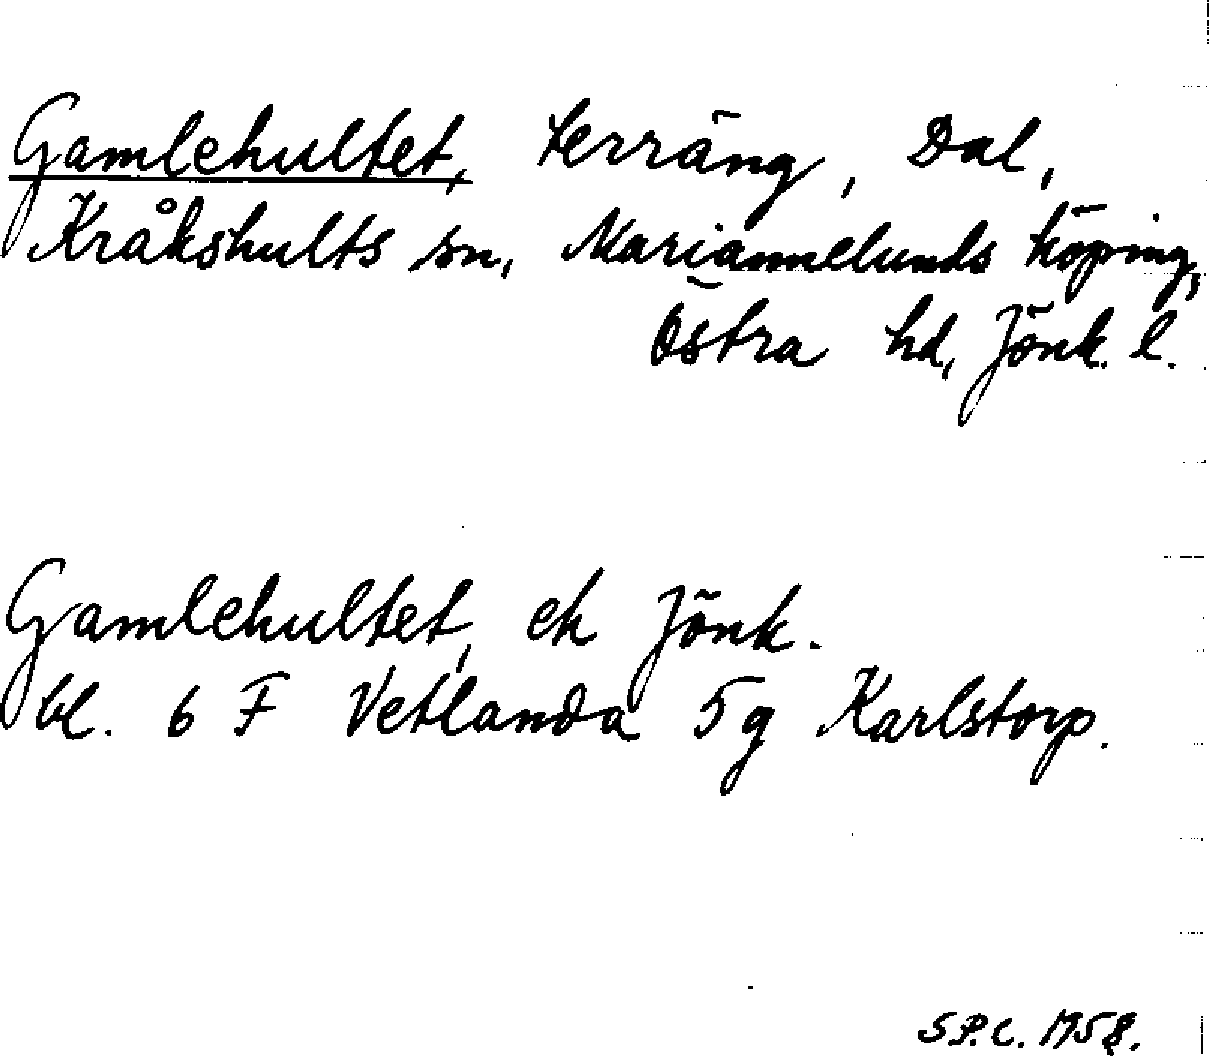 Gamlehultet, terräng, Dal,
Kråkshults sn, Mariannelunds köping,
Östra hd, Jönk. l.
Gamlehultet, ek Jönk.
bl. 6 F Vetlanda 5g Karlstorp.
S.P.C. 1958.